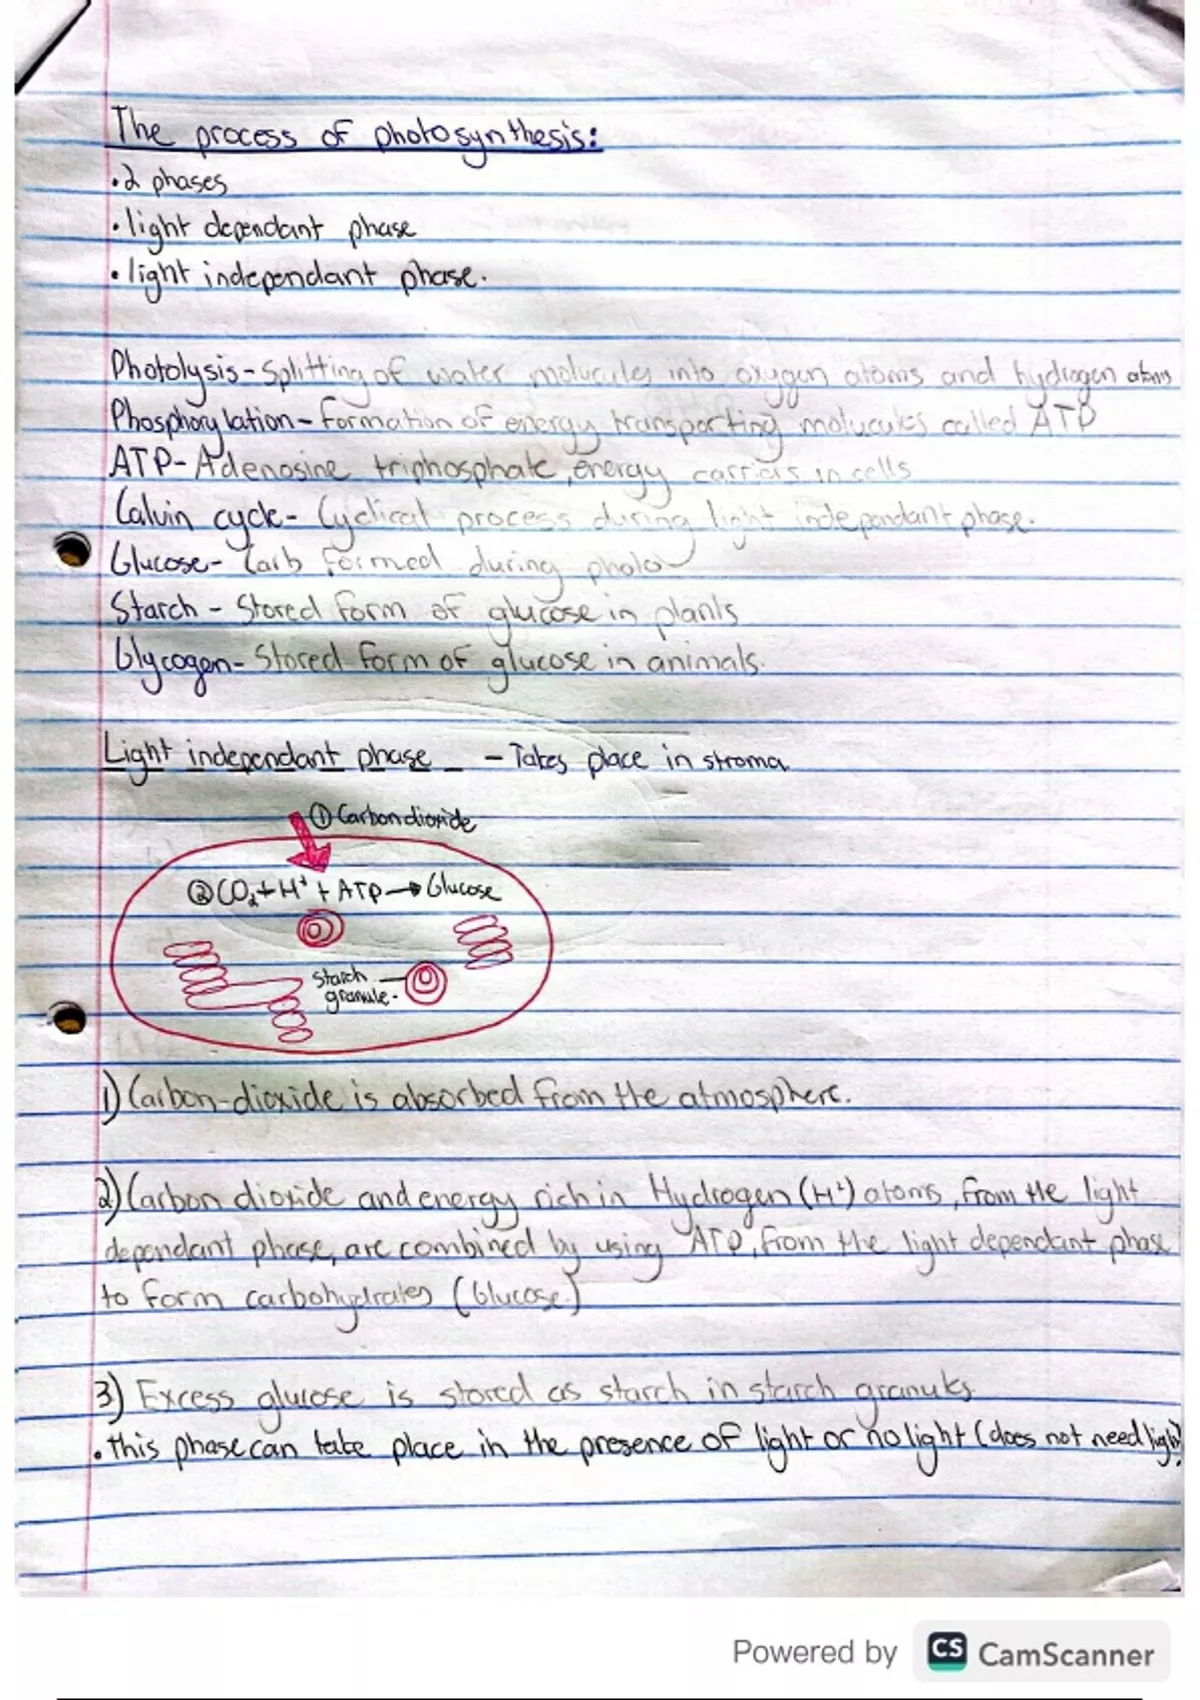 The process of photosynthesis:
•2 phases
•light dependant phase
•light independant phase.
Photolysis-Splitting of water molucules into oxygen atoms and hydrogen atoms
Phosphorylation-Formation of energy transporting molucules called ATP
ATP-Adenosine triphosphate, energy carriers in cells
Calvin cycle- Cyclical process during light independant phase.
Glucose- Carb formed during photo
Starch - Stored form of glucose in plants
Glycogen- Stored form of glucose in animals.
Light independant phase - Takes place in stroma
① Carbondioxide
② CO₂+H⁺+ATP→Glucose
Starch
granule-
1) Carbon-dioxide is absorbed from the atmosphere.
2) Carbon dioxide and energy rich in Hydrogen (H⁺) atoms, from the light
dependant phase, are combined by using ATP, from the light dependant phase
to form carbohydrates (Glucose.)
3) Excess glucose is stored as starch in starch granules.
•this phase can take place in the presence of light or no light (does not need light)
Powered by CS CamScanner